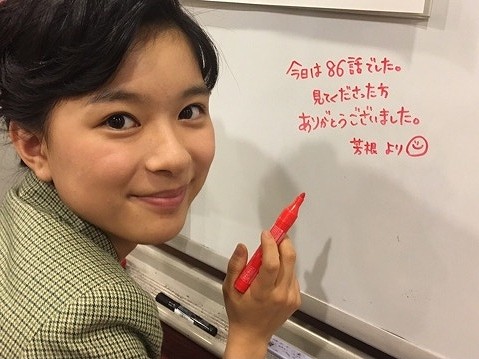 今日は86話でした。
見てくださった方
ありがとうございました。
芳根 より